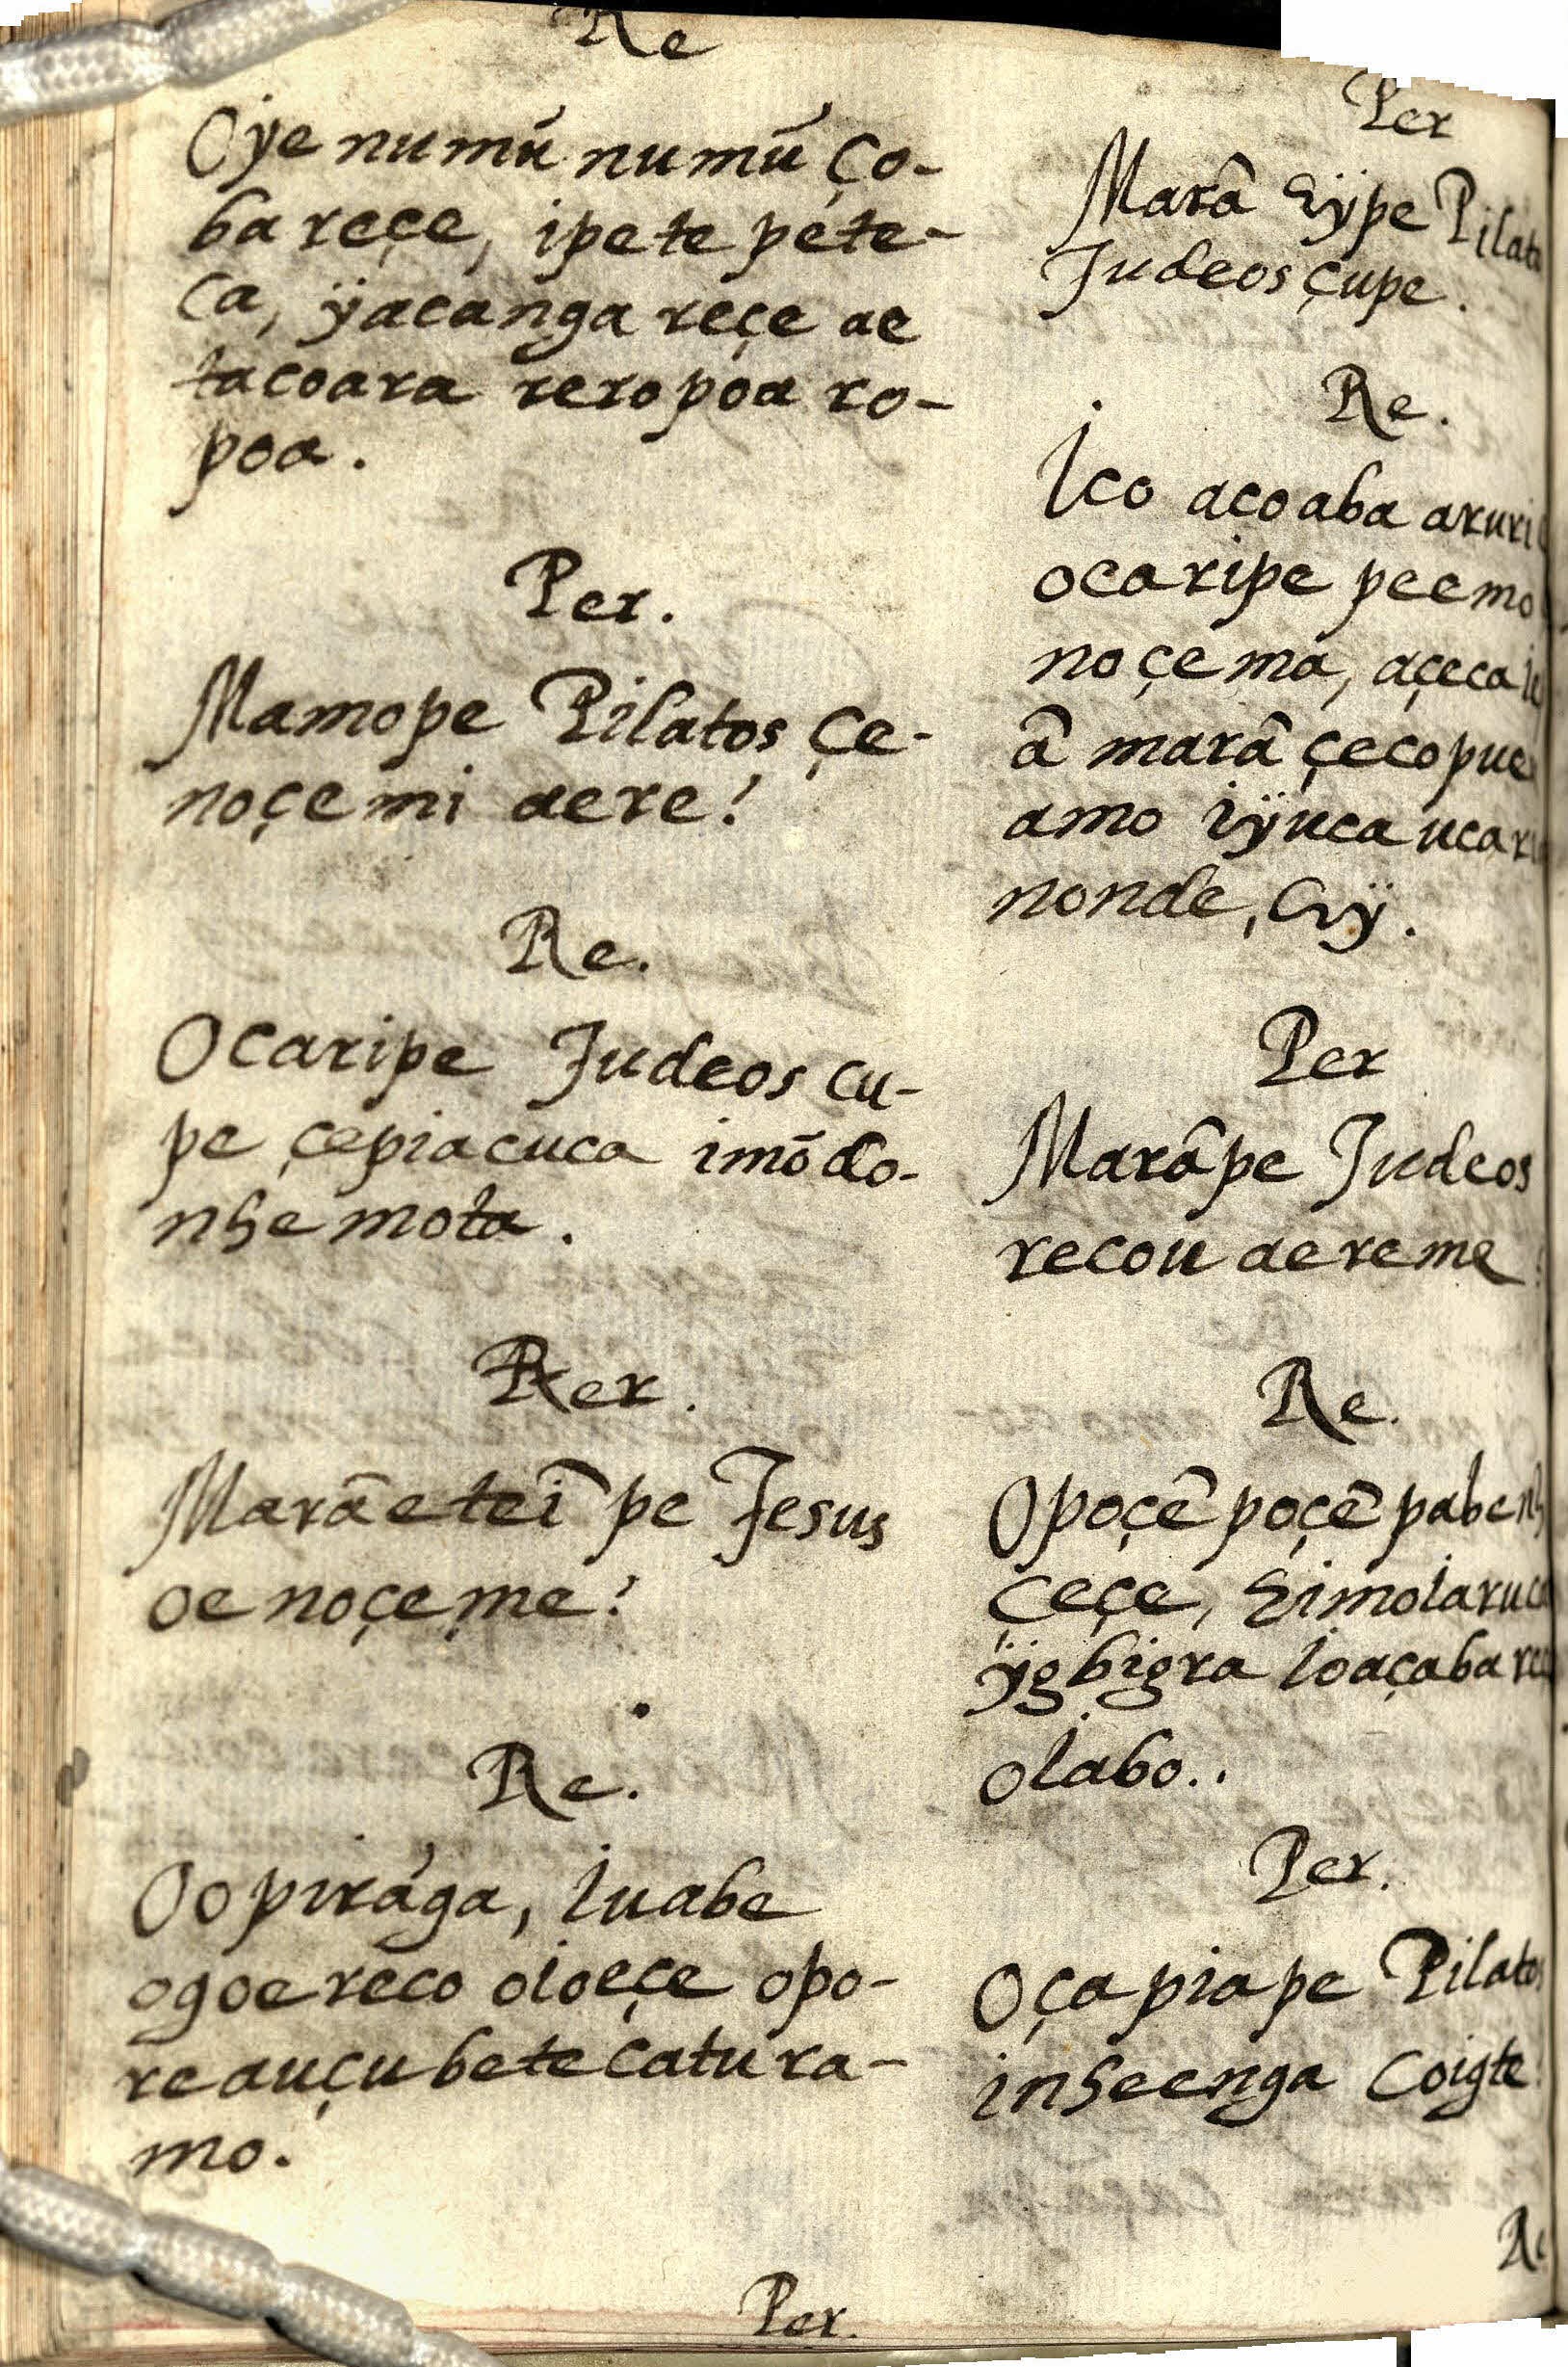 Re
Oÿe numũ numũ ço-
ba reçe, ipete pete-
ca, ÿacanga reçe ae
tacoara reropoa ro-
poa.
Per.
Mamope Pilatos çe-
noçemi aere?
Re.
Ocaripe Judeos cu-
pe çepiacuca imõdo-
nhe mota.
Per.
Marãetei pe Jesus
oe noçeme?
Re.
Oopirãga, iuabe
ogoereco oioeçe opo-
reauçubetecatura-
mo.
Per.
Per
Marâ hÿpe
Judeos çupe.
Re.
Ico acoaba
ocaripe
noçema,
â marâ
amo
nonde, hÿ.
Per
Marâpe Judeos
recou aereme
Re.
Opoçẽ poçẽ
çeçe,
ÿgbigra ioaçaba
oiabo..
Per.
Oçapiape Pilatos
inheenga Coigte